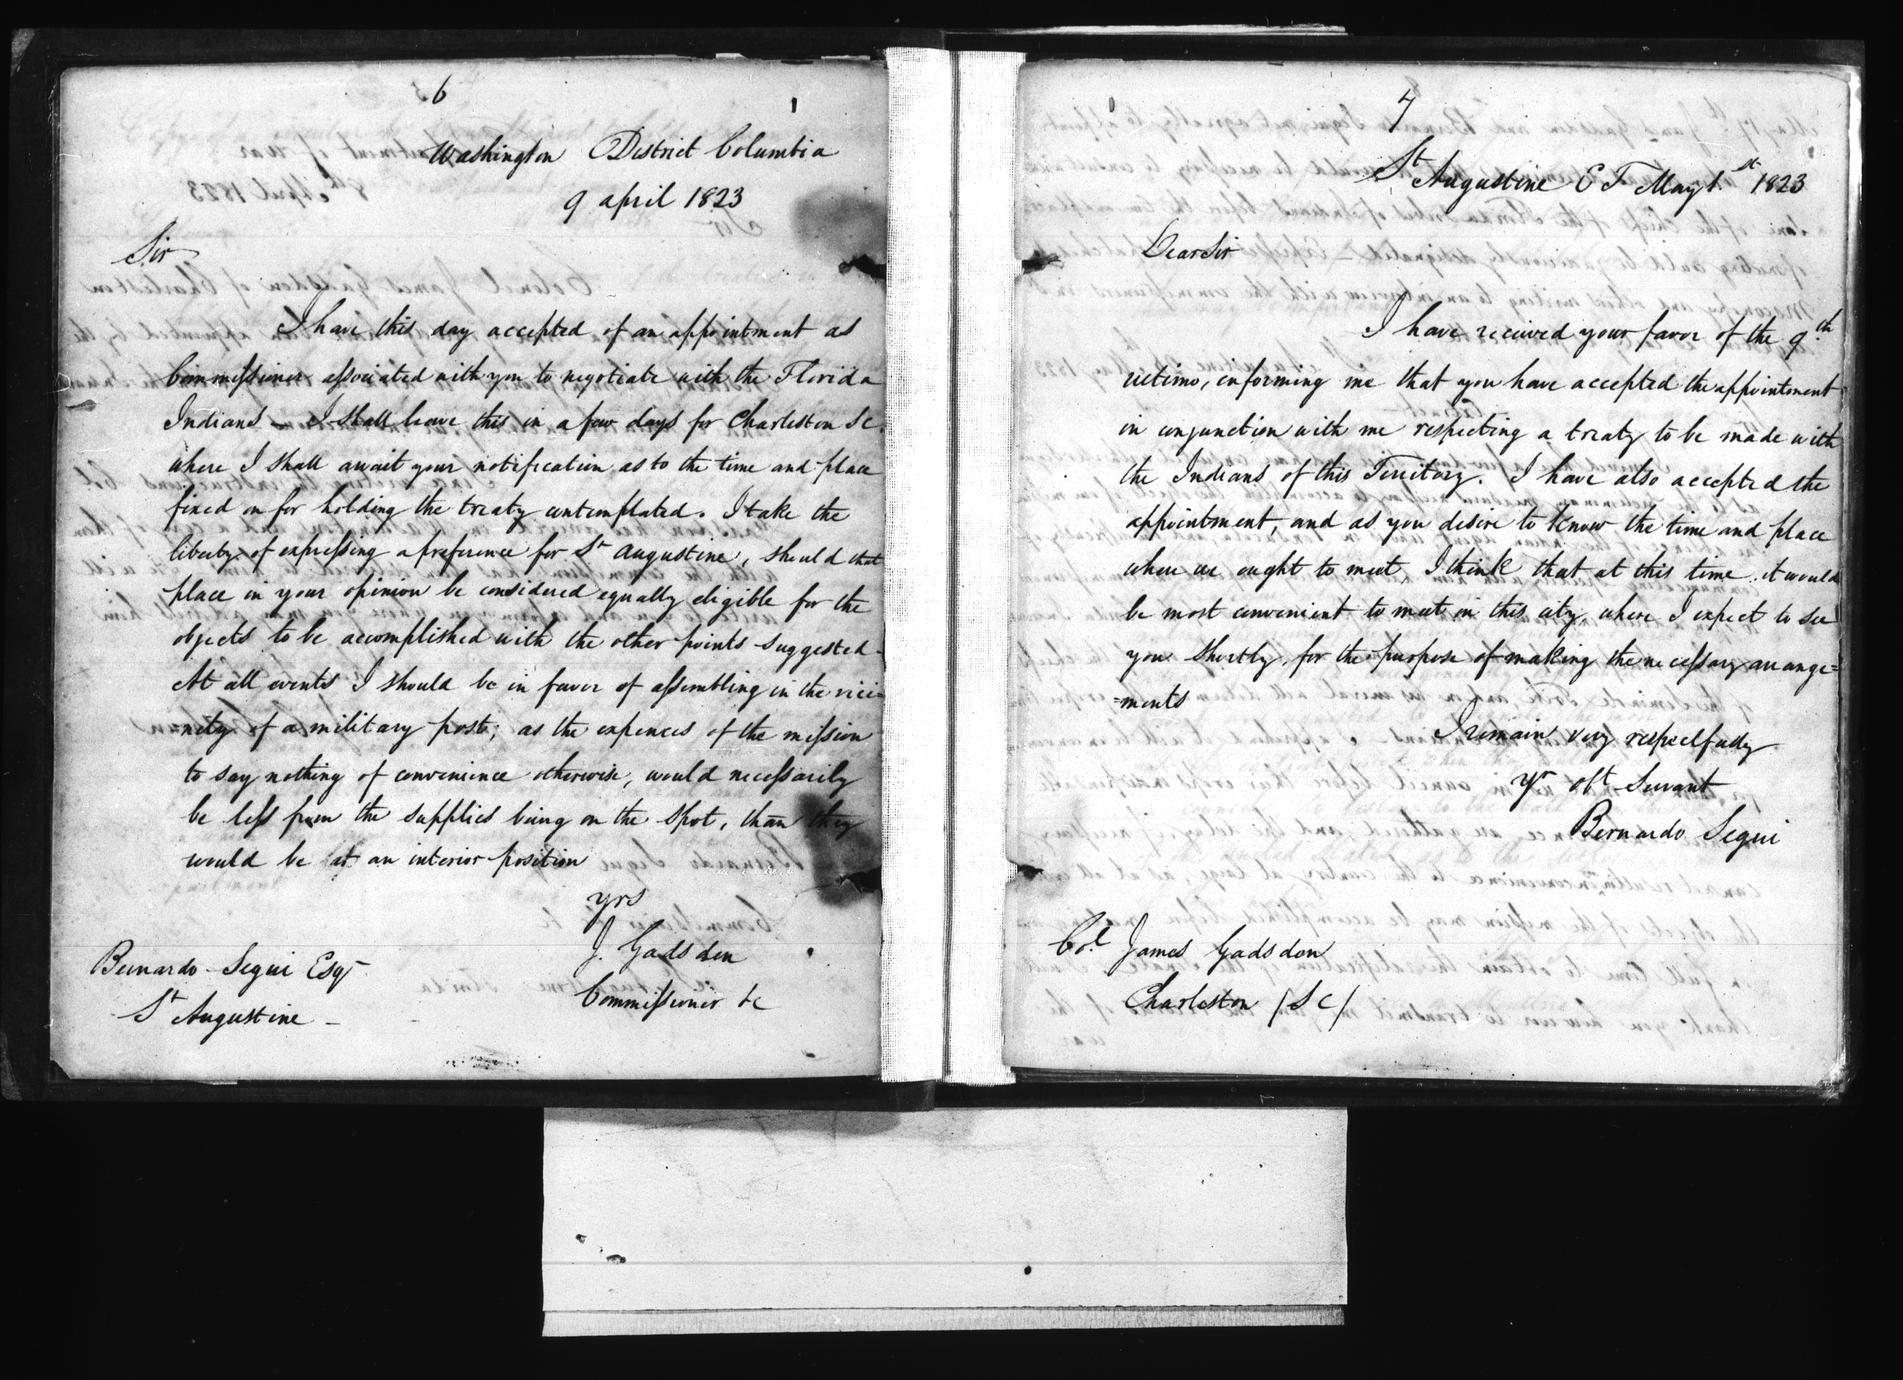 6
Washington District Columbia
9 april 1823
Sir
I have this day accepted of an appointment as
Commissioner associated with you to negotiate with the Florida
Indians — I shall leave this in a few days for Charleston S C.
where I shall await your notification as to the time and place
fixed on for holding the treaty contemplated. I take the
liberty of expressing a preference for St Augustine, should that
place in your opinion be considered equally eligible for the
objects to be accomplished with the other points suggested
At all events I should be in favor of assembling in the vici=
nity of a military post; as the expences of the mission
to say nothing of convenience otherwise, would necessarily
be less from the supplies being on the spot, than they
would be at an interior position
yrs
J. Gadsden
Commissioner &c
Bernardo Segui Esqr
St Augustine —
7
St Augustine E F May 1st 1823
Dear Sir
I have received your favor of the 9th
ultimo, informing me that you have accepted the appointment
in conjunction with me respecting a treaty to be made with
the Indians of this Territory. I have also accepted the
appointment, and as you desire to know the time and place
where we ought to meet, I think that at this time it would
be most convenient to meet in this city, where I expect to see
you shortly, for the purpose of making the necessary arrange=
=ments
I remain very respectfully
Yr obt Servant
Bernardo Segui
Col. James Gadsden
Charleston (S C)